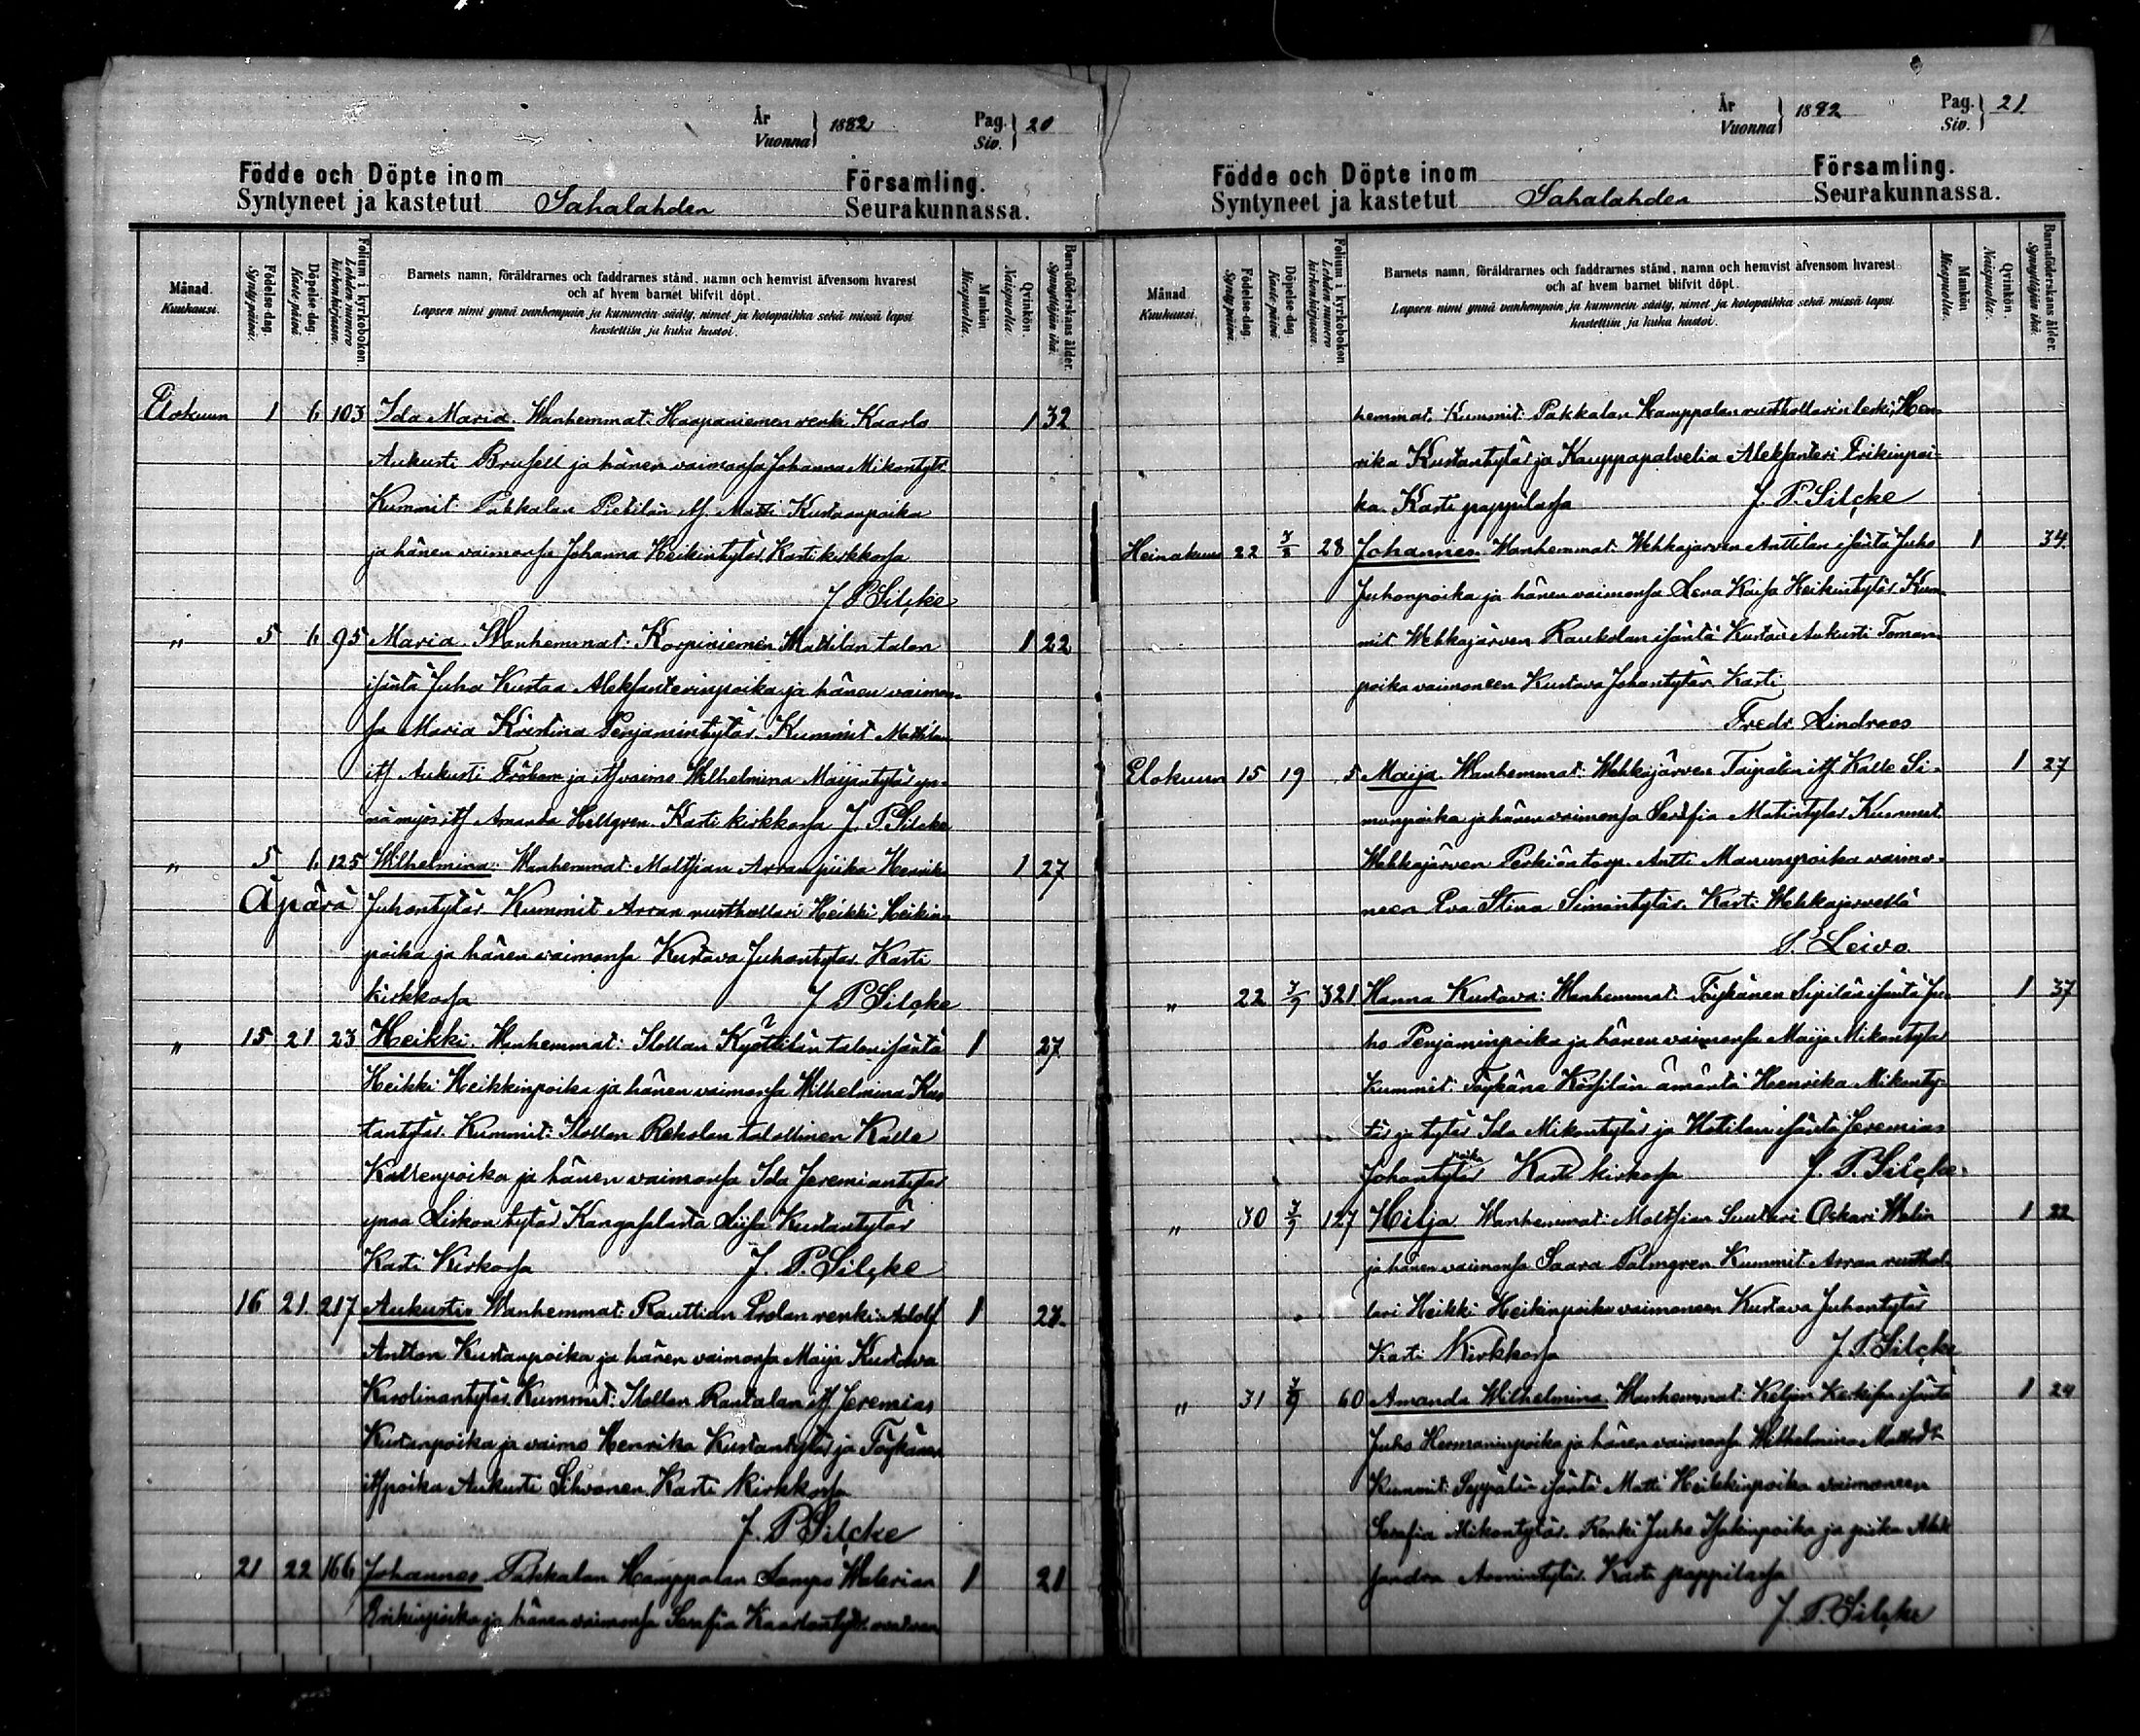 År
Vuonna } 1882 Pag.
Siv. } 20
Födde och Döpte inom Församling.
Syntyneet ja kastetut Sahalahden Seurakunnassa.
Månad. Kuukausi.
Födelse-dag. Syntypäivä.
Döpelse-dag. Kaste-päivä.
Folium i kyrkoboken. Lehden numero kirkonkirjassa.
Barnets namn, föräldrarnes och faddrarnes stånd, namn och hemvist äfvensom hvarest
och af hvem barnet blifvit döpt.
Lapsen nimi ynnä vanhempain ja kummein sääty, nimet ja kotopaikka sekä missä lapsi
kastettiin ja kuka kastoi.
Mankön. Miespuolta.
Qvinkön. Naispuolta.
Barnaföderskans ålder. Synnyttäjän ikä.
Elokuun 1 6 103 Ida Maria. Wanhemmat: Haapaniemen renki Kaarlo 1 32
Aukusti Brusell ja hänen vaimonsa Johanna Mikontytär
Kummit: Pakkalan Pietilän Matti Kustaanpoika
ja hänen vaimonsa Johanna Heikintytär. Kasti kirkkossa
J. P. Silçke
" 5 6 95 Maria. Wanhemmat: Korpiniemen Mattilan talon 1 22
isäntä Juha Kustaa Aleksanterinpoika ja hänen vaimon-
sa Maria Kristina Penjamintytär. Kummit Mattilan
itf Aukusti Fröberg ja vaimo Wilhelmina Maijantytär yn-
nä myös itf Amanda Hellgren. Kasti kirkkossa J. P. Silçke
" 5 6 125 Wilhelmina: Wanhemmat: Moltsian Arran piika Henrika 1 27
Äpärä Juhontytär Kummit Arran rusthollari Heikki Heikin-
poika ja hänen vaimonsa Kustava Juhontytär. Kasti
kirkkossa J. P. Silçke
" 15 21 23 Heikki. Wanhemmat: Itollan Kyöttilän talon isäntä 1 27
Heikki Heikkinpoika ja hänen vaimonsa Wilhelmina Kus
tantytär. Kummit: Itollan Rekolan talollinen Kalle
Kallenpoika ja hänen vaimonsa Ida Jeremiantytär
ynnä Liskon tytär Kangasalasta Liisa Kustantytär
Kasti Kirkossa J. P. Silçke
16 21 217 Aukusti. Wanhemmat: Rauttian Prolan renki Adolf 1 27
Anttan Kustanpoika ja hänen vaimonsa Maija Kustava
Karolinantytär. Kummit: Itollan Rantalan itf Jeremias
Kustanpoika ja vaimo Henrika Kustantytär ja Töykänän
itf poika Aukusti Silvonen. Kasti Kirkkossa
J. P. Silçke
21 22 166 Johannes. Pakkalan Hamppalan Lampo Walerian 1 21
Erikinpoika ja hänen vaimonsa Serafia Kaarlontytär ovat van
År
Vuonna } 1882 Pag.
Siv. } 21.
Födde och Döpte inom Församling.
Syntyneet ja kastetut Sahalahden Seurakunnassa.
Månad. Kuukausi.
Födelse-dag. Syntypäivä.
Döpelse-dag. Kaste-päivä.
Folium i kyrkoboken. Lehden numero kirkonkirjassa.
Barnets namn, föräldrarnes och faddrarnes stånd, namn och hemvist äfvensom hvarest
och af hvem barnet blifvit döpt.
Lapsen nimi ynnä vanhempain ja kummein sääty, nimet ja kotopaikka sekä missä lapsi
kastettiin ja kuka kastoi.
Mankön. Miespuolta.
Qvinkön. Naispuolta.
Barnaföderskans ålder. Synnyttäjän ikä.
hemmat. Kummit: Pakkalan Hamppalan rusthollarin leski Hen-
rika Kustantytär ja Kauppapalvelia Aleksanteri Erikinpoi-
ka. Kasti pappilassa J. P. Silçke
Heinakuu 22 7/8 28 Johannes. Wanhemmat: Wehkajarven Anttilan isäntä Juho 1 34.
Juhonpoika ja hänen vaimonsa Lena Kaisa Heikintytär. Kum-
mit Wehkajärven Raukolan isäntä Kustaa Aukusti Toman-
poika vaimoneen Kustava Johantytär. Kasti
Fredr Lindroos
Elokuun 15 19 5 Maija Wanhemmat: Wehkajärven Taipalen itf Kalle Si- 1 27
monpoika ja hänen vaimonsa Serafia Matintytär. Kummit
Wehkajärven Perkiön torp. Antti Manunpoika vaimo-
neen Eva Stina Simontytär. Kasti Wehkajarvellä
S. Leivo.
" 22 3/9 321 Hanna Kustava: Wanhemmat: Töykänen Sipilän isäntä Ju- 1 37
ho Penjaminpoika ja hänen vaimonsa Maija Mikontytär
Kummit: Töykänä Kössilän ämäntä Henrika Mikonty-
tär ja tytär Ida Mikontytär ja Hotilan isäntä Jeremias
Johantytär poika Kasti kirkossa J. P. Silçke.
" 30 3/9 127 Hilja Wanhemmat: Moltsian Suutari Oskari Walin 1 22
ja hänen vaimonsa Saara Palmgren Kummit Arran rusthol-
lari Heikki Heikinpoika vaimoneen Kustava Juhontytär
Kasti Kirkkossa J. P. Silçke
" 31 3/9 60 Amanda Wilhelmina. Wanhemmat: Keljon Kerkisen isäntä 1 24
Juho Hermaninpoika ja hänen vaimonsa Wilhelmina
Kummit: Seppälän isäntä Matti Heikkinpoika vaimoneen
Serafia Mikontytär. Renki Juho Isakinpoika ja piika Alek
sandra Armintytär. Kasti pappilassa
J. P. Silçke